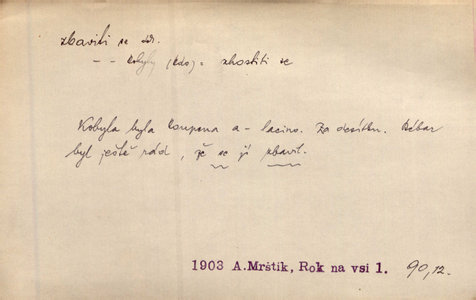 zbaviti se dok.
– – kobyly (kdo) = zhostiti se
Kobyla byla koupena a – lacino. Za desítku. Bébar
byl ještě rád, že se jí zbavil.
1903 A.Mrštík, Rok na vsi 1. 90,12.